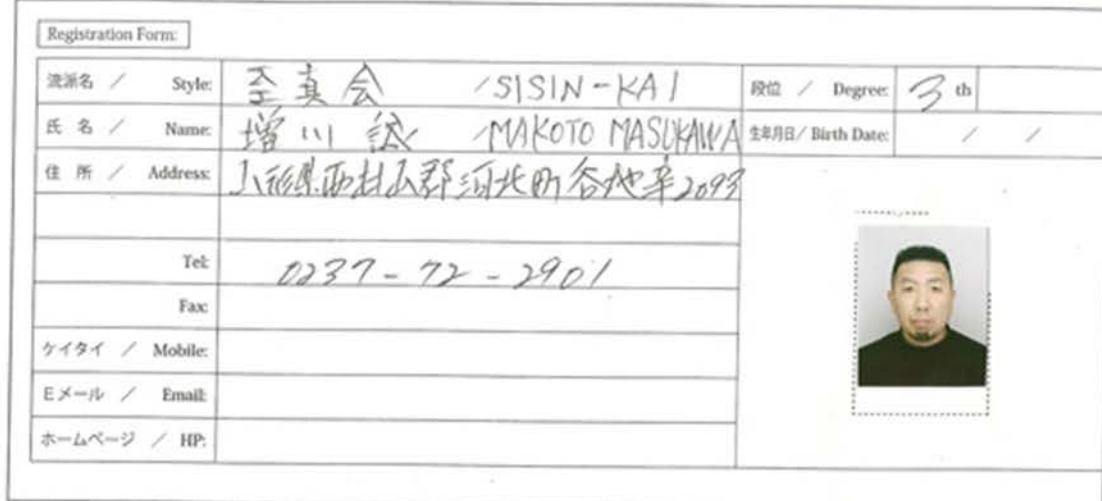 Registration Form:
流派名 / Style: 至真会 /SISIN-KAI 段位 / Degree: 3 th
氏 名 / Name: 増川 誠 /MAKOTO MASUKAWA 生年月日/ Birth Date: / /
住 所 / Address: 山形県西村山郡河北町谷地辛2093
Tel: 0237-72-2901
Fax:
ケイタイ / Mobile:
Eメール / Email:
ホームページ / HP: